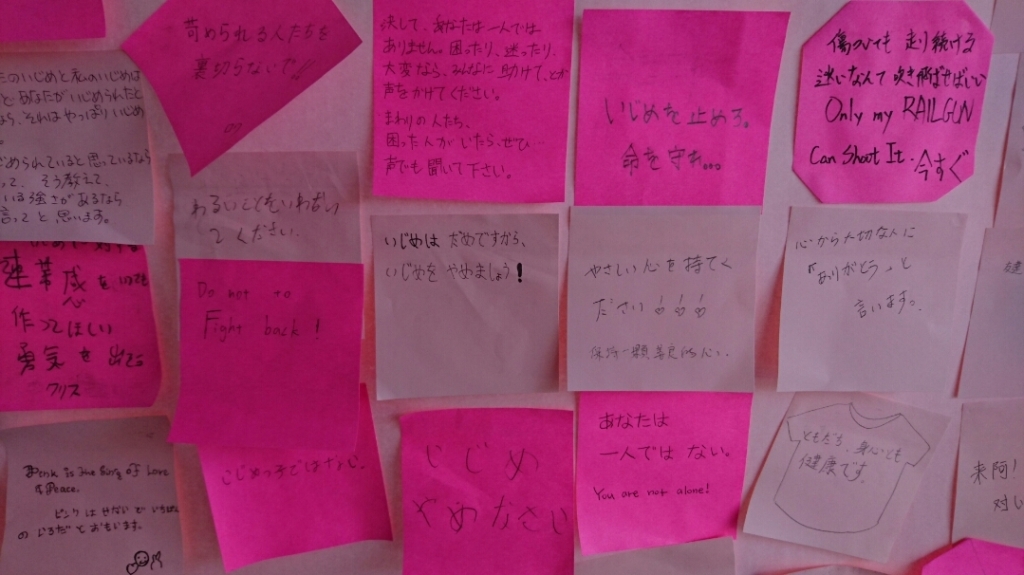 苛められる人たちを
裏切らないで!!
決して、あなたは一人では
ありません。困ったり、迷ったり、
大変なら、みんなに助けて、とか
声をかけてください。
まわりの人たち、
困った人がいたら、ぜひ
声でも聞いて下さい。
いじめを止めろ。
命を守れ...
傷ついても 走り続ける
迷いなんて 吹き飛ばせばいい
Only my RAILGUN
Can Shoot It. 今すぐ
たのいじめと私のいじめは
とあなたがいじめられたと
なら、それはやっぱりいじめ
じめられていると思っているなら
って、そう教えて、
いる強さがあるなら
言ってと思います。
わるいことをいわない
でください.
連帯感を
作ってほしい
勇気を出して
クリス
Do not to
Fight back!
いじめは だめですから、
いじめを やめましょう!
やさしい心を持てく
ださい
保持一顆善良的心.
心から大切な人に
「ありがとう」と
言います。
Pink is the Song of Love
& Peace.
ピンクは せだいで いちばん
の いろだ と おもいます。
いじめっ子ではない、
いじめ
やめなさい
あなたは
一人では ない。
You are not alone!
ともだち、身心とも
健康です。
来阿!
対い